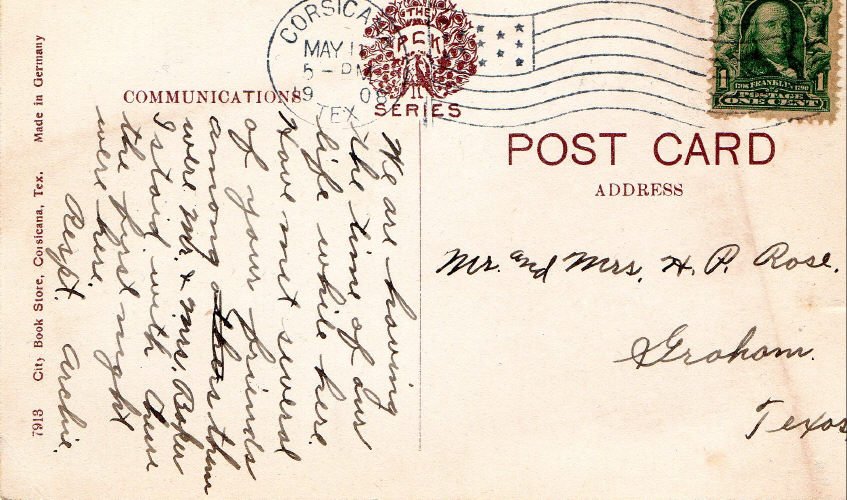 CORSICA
MAY 11
5 - PM
1908
TEX
THE
P C K
SERIES
1 1
BENJ. FRANKLIN
ONE CENT
COMMUNICATIONS
POST CARD
ADDRESS
We are having
the time of our
life while here.
Have met several
of your friends
among others them
were Mr. & Mrs. Baker
I staid with them
the first night
were here.
Respt. Archie.
Mr. and Mrs. H. P. Rose.
Graham.
Texas
7913 City Book Store, Corsicana, Tex. Made in Germany